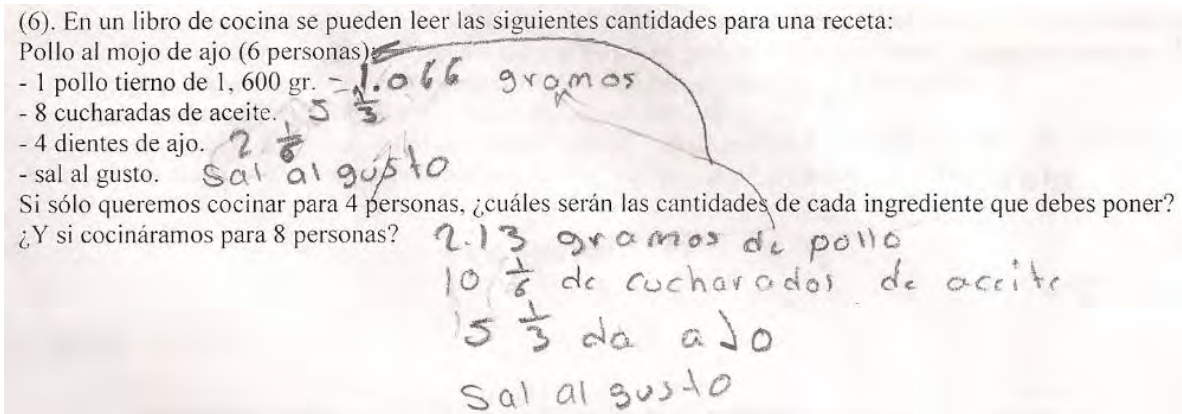 (6). En un libro de cocina se pueden leer las siguientes cantidades para una receta:
Pollo al mojo de ajo (6 personas):
- 1 pollo tierno de 1, 600 gr. - 1.066 gramos
- 8 cucharadas de aceite. 5 1/3
- 4 dientes de ajo. 2 1/6
- sal al gusto. Sal al gusto
Si sólo queremos cocinar para 4 personas, ¿cuáles serán las cantidades de cada ingrediente que debes poner?
¿Y si cocináramos para 8 personas? 2.13 gramos de pollo
10 1/6 de cucharados de aceite
5 1/3 da ajo
Sal al gusto